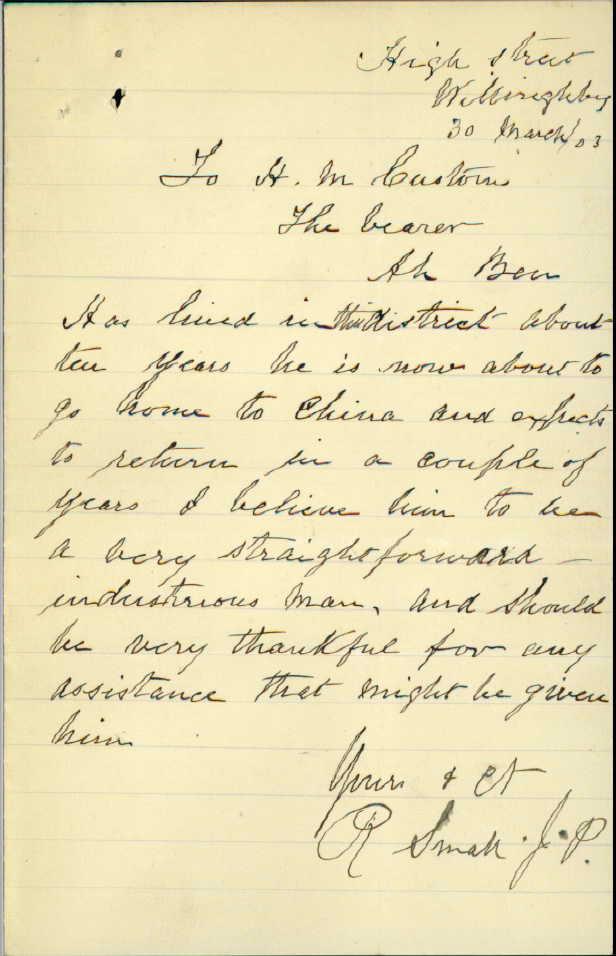 High street
Willoughby
30 March/03
To H. M Customs
The bearer
Ah Bow
Has lived in this district about
ten years he is now about to
go home to China and expects
to return in a couple of
years I believe him to be
a very straightforward -
industrious man, and should
be very thankful for any
assistance that might be given
him
Yours & ct
R Small. J. P.